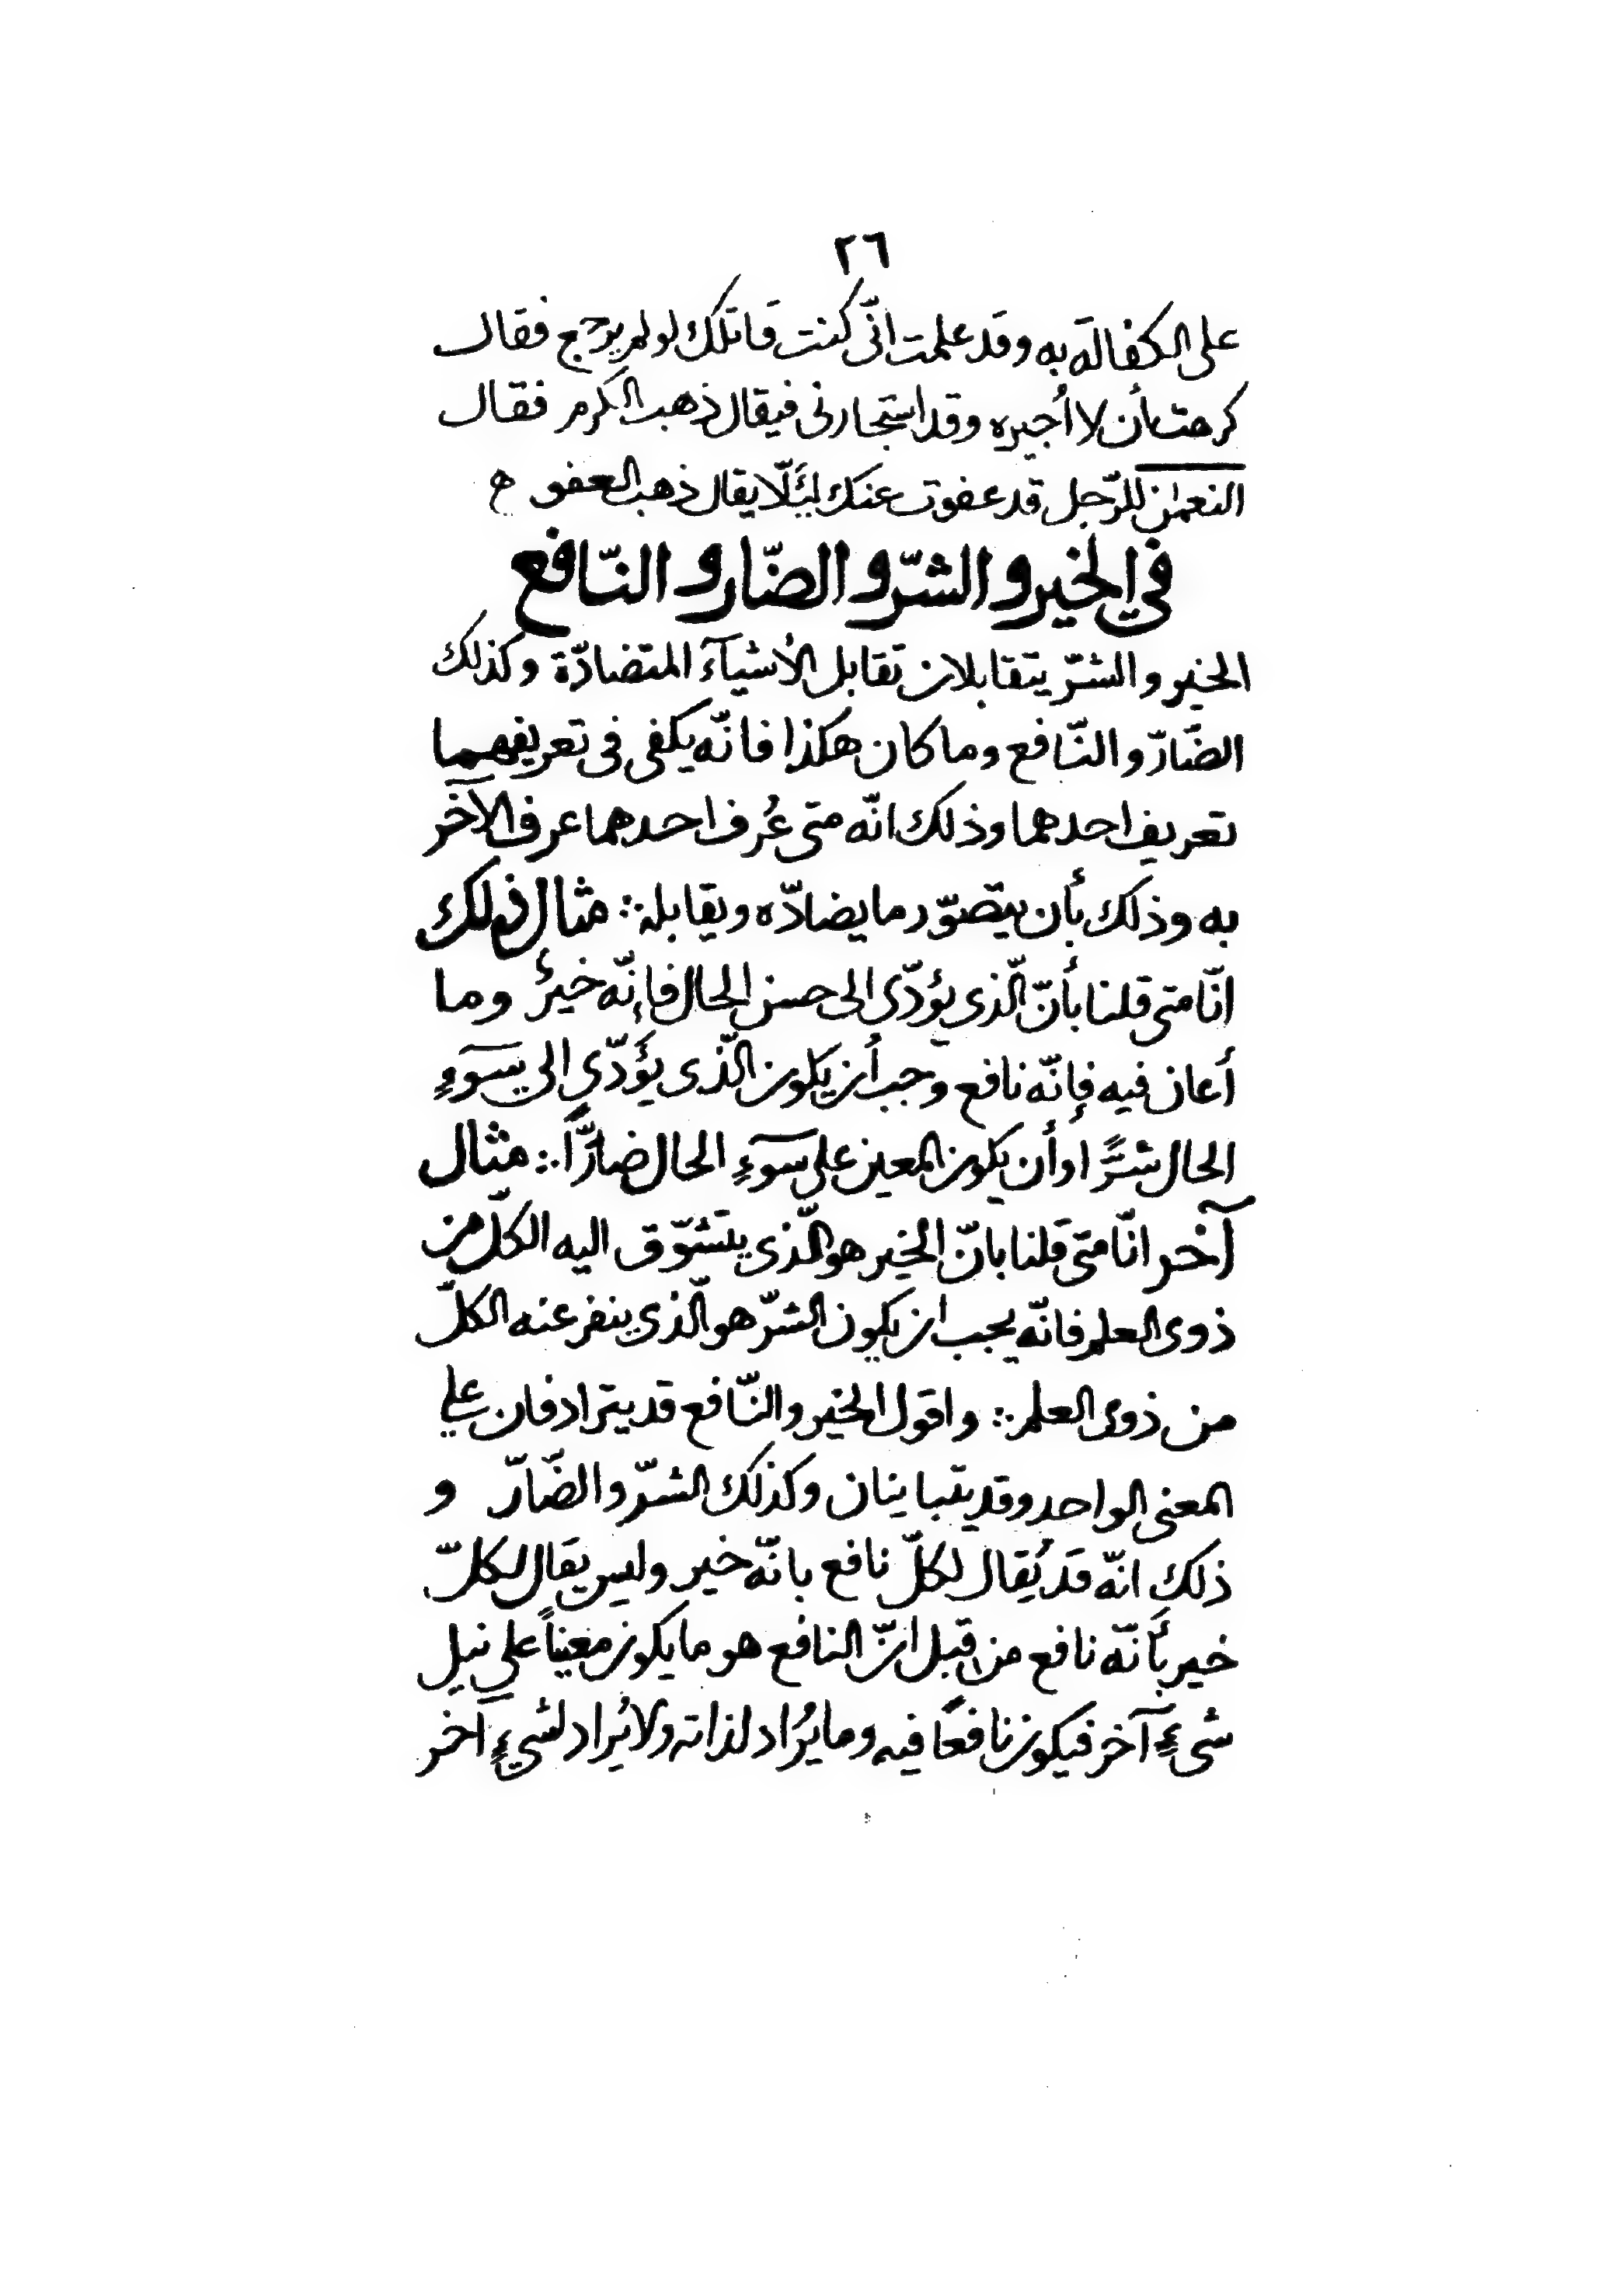 ٢٦
على الكفالة به وقد علمت انّى كنت قاتلك لو لم يرجع فقال
كرهت أن لا اُجيره وقد استجارنى فيقال ذهب الكرم فقال
النعمٰن للرّجل قد عفوت عنك لئَلّا يقال ذهب العفو ه
في الخير والشرّ والضّار والنّافع
الخير والشرّ يتقابلان تقابل الأشيآء المتضادّة وكذلك
الضّارّ والنّافع وما كان هكذا فانّه يكفى فى تعريفهما
تعريف احدهما وذلك انّه متى عُرف احدهما عرف الآخر
به وذلك بأن يتصوّر ما يضادّه ويقابله ∴ مثال ذلك
انّا متى قلنا بأنّ الّذى يؤدّى الى حسن الحال فإنّه خيرٌ وما
أعان فيه فإنّه نافع وجب أن يكون الّذى يؤَدّي الى سَوءِ
الحال شرًّا او أن يكون المعين على سَوءِ الحال ضارًّا ∴ مثال
آخر انّا متى قلنا بانّ الخير هو الّذى يتشوّق اليه الكلّ من
ذوى العلم فانّه يجب ان يكون الشرّ هو الّذى ينفر عنه الكلّ
من ذوى العلم ∴ واقول الخير والنّافع قد يترادفان علي
المعنى الواحد وقد يتباينان وكذلك الشرّ والضّارّ و
ذلك انّه قد يُقال لكلّ نافع بانّه خير وليس يقال لكلّ
خير بأنّه نافع من قبل انّ النافع هو ما يكون معيناً علي نيل
شىءٍ آخر فيكون نافعًا فيه وما يُراد لذاته ولا يُراد لشىءٍ آخر